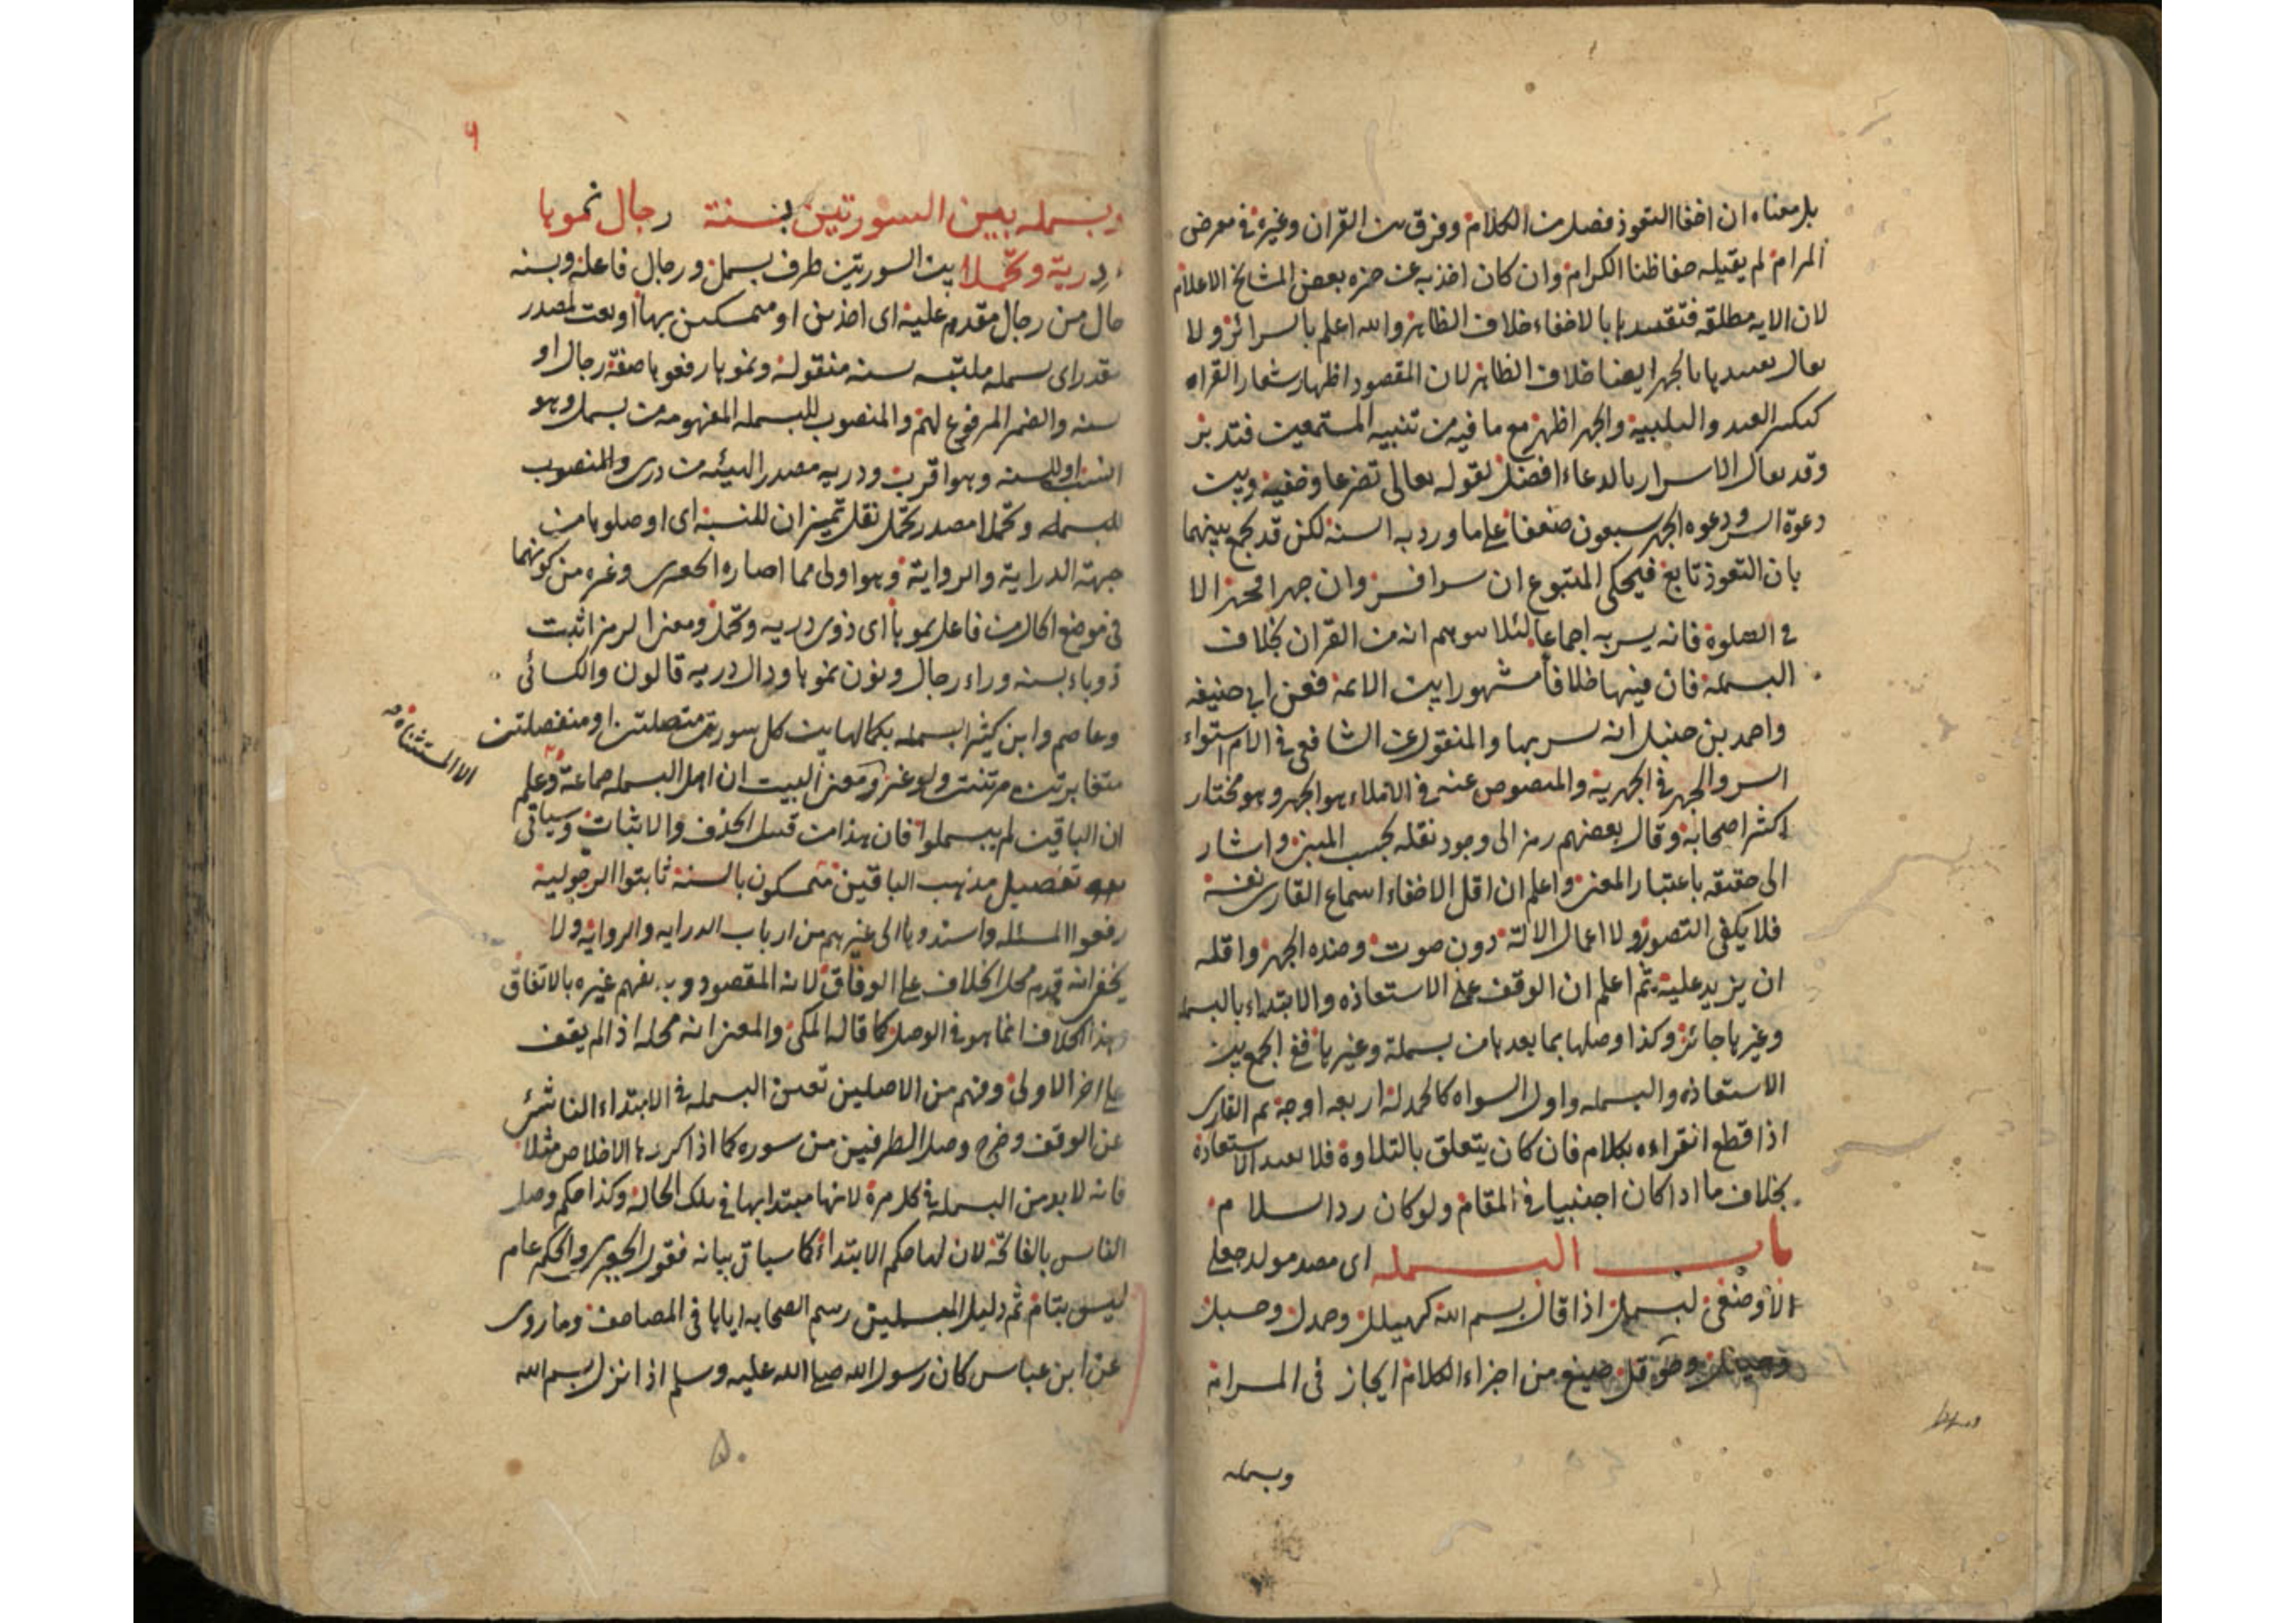 بل معناه ان اخفا التعوذ فصل من الكلام وفرق بين القران وغيره في معرض
المرام لم يقبله حفاظنا الكرام وان كان اخذ به عن حمزه بعض المشايخ الاعلام
لان الايه مطلقه فتقييدها بالاخفاء خلاف الظاهر والله اعلم بالسرائر ولا
يقال تقييدها بالجهر ايضا خلاف الظاهر لان المقصود اظهار شعار القراه
كتكبير العيد والتلبية والجهر اظهر مع ما فيه من تنبيه المستمعين فتدبر
وقد يقال الاسرار بالدعاء افضل لقوله تعالى تضرعا وخفية وبين
دعوة السر ودعوه الجهر سبعون ضعفا على ما ورد به السنة لكن قد يجمع بينهما
بان التعوذ تابع فيحكى المتبوع ان سرا فسر وان جهرا فجهر الا
في الصلوة فانه يسر به اجماعا لئلا يتوهم انه من القران بخلاف
البسملة فان فيها خلافا مشهورا بين الائمة فعن ابي حنيفه
واحمد بن حنبل انه يسر بها والمنقول عن الشافعي في الام استواء
السر والجهر في الجهرية والمنصوص عنه في الاملاء هو الجهر وهو مختار
اكثر اصحابه وقال بعضهم رمز الى وجود نقله بحسب المبنى واشار
الى حقيقه باعتبار المعنى واعلم ان اقل الاخفاء اسماع القارى نفسه
فلا يكفى التصور ولا اعمال الالة دون صوت وضده الجهر واقله
ان يزيد عليه ثم اعلم ان الوقف على الاستعاذه والابتداء بالبسمله
وغيرها جائز وكذا وصلها بما بعدها من بسملة وغيرها ففي الجمع بين
الاستعاذه والبسمله واول السواه كالحمد لله اربعه اوجه ثم القارى
اذا قطع القراءه بكلام فان كان يتعلق بالتلاوة فلا يعيد الاستعاذة
بخلاف ما اذا كان اجنبيا في المقام ولو كان رد السلام
باب البسمله اى مصدر مولد جعلى
لبسمل اذا قال بسم الله كهيلل وحمدل وحسبل
من اجزاء الكلام ايجاز في المرانه
وبسمله
وبسمله بين السورتين بسنة رجال نموها
درية وتحملا بين السورتين ظرف بسمل ورجال فاعله وبسنه
حال من رجال مقدم عليه اى اخذين او متمسكين بها او نعت لمصدر
مقدر اى بسمله ملتبسه بسنه منقولة ونموها رفعوها صفة رجال او
سنه والضمير المرفوع لهم والمنصوب للبسمله المفهومه من بسمل وهو
انسب او للسنه وهو اقرب ودريه مصدر الهيئه من درى والمنصوب
للبسمله وتحملا مصدر تحمل نقل تمييزان للنسبة اى اوصلوها من
جهة الدراية والرواية وهو اولى مما اختاره الجعبرى وغيره من كونهما
في موضع الحال من فاعل نموها اى ذوى دريه وتحمل ومعنى الرمز اثبت
ذو باء بسنه وراء رجال ونون نموها ودال دريه قالون والكسائى
وعاصم وابن كثير البسمله بكمالها بين كل سورتين متصلتين او منفصلتين
الا المستثناة
متغايرتين مرتبتين ولو غير ومعنى البيت ان اهل البسمله جماعة وعلم
ان الباقين لم يبسملوا فان هذا من قبيل الحذف والاثبات وسياتى
بعد تفصيل مذهب الباقين متمسكون بالسنة ثابتوا الرجولية
رفعوا المسئله واسندوها الى غيرهم من ارباب الدرايه والروايه ولا
يخفى انه قدم محل الخلاف على الوفاق لانه المقصود وبه يفهم غيره بالاتفاق
وهذا الخلاف انما هو في الوصل كما قاله المكى والمعنى انه محله اذا لم يقف
على اخر الاولى وفهم من الاصلين تعين البسمله في الابتداء الناشئ
عن الوقف وخرج وصل الطرفين من سوره كما اذا كررها الاخلاص مثلا
فانه لا بد من البسملة في كل مرة لانها مبتدا بها في تلك الحالة وكذا حكم وصل
الناس بالفاتحة لان لها حكم الابتداء كما سياتى بيانه فقول الجعبرى والحكم عام
ليس بتام ثم دليل المبسملين رسم الصحابه اياها في المصاحف وما روى
عن ابن عباس كان رسول الله صلى الله عليه وسلم اذا نزل بسم الله
۵۰